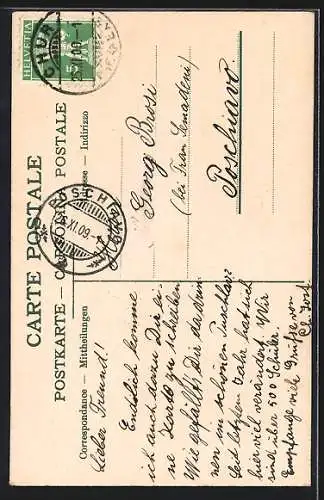 CARTE POSTALE
POSTKARTE — CARTOLINA POSTALE
Correspondance — Mittheilungen
Adresse — Indirizzo
HELVETIA
5
CHUR
XI.09.-1
POSCHIAVO
XI.09
Georg Brosi
(bei Frau Semadeni)
Poschiavo
Lieber Freund!
Endlich komme
ich auch dazu Dir ei-
ne Karte zu schreiben
Wie gefällt's Dir da drun-
nen im schönen Puschlav?
Seit letztem Jahr hat sich
hier viel verändert. Wir
sind über 500 Schüler.
Empfange viele Grüsse von